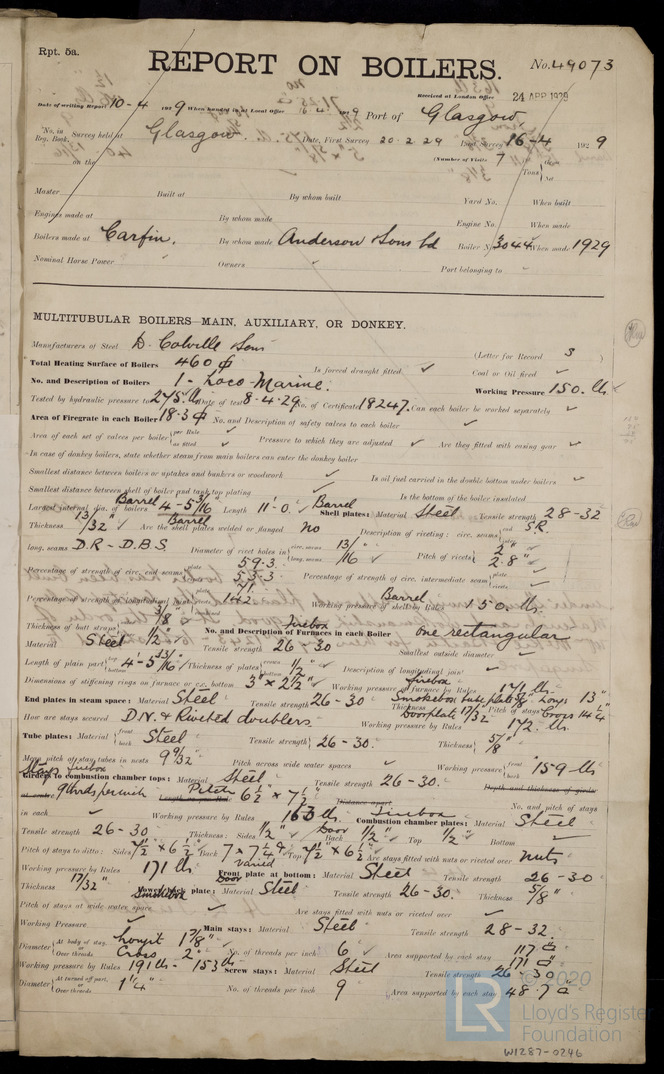 Rpt. 5a.
REPORT ON BOILERS.
No. 49073
Received at London Office 24 APR 1929
Date of writing Report 10-4 1929 When handed in at Local Office 16.4.1929 Port of Glasgow
No. in Reg. Book. Survey held at Glasgow Date, First Survey 20.2.29 Last Survey 16-4 1929
on the (Number of Visits 7) Tons
Master Built at By whom built Yard No. When built
Engines made at By whom made Engine No. When made
Boilers made at Carfin. By whom made Anderson Sons Ld Boiler No. 3044 When made 1929
Nominal Horse Power Owners Port belonging to
MULTITUBULAR BOILERS—MAIN, AUXILIARY, OR DONKEY.
Manufacturers of Steel D. Colville & Sons (Letter for Record S)
Total Heating Surface of Boilers 460 Is forced draught fitted Coal or Oil fired
No. and Description of Boilers 1 - Loco-Marine. Working Pressure 150. lb
Tested by hydraulic pressure to 275 lb Date of test 8-4-29 No. of Certificate 18247. Can each boiler be worked separately
Area of Firegrate in each Boiler 18.3 No. and Description of safety valves to each boiler
Area of each set of valves per boiler per Rule as fitted Pressure to which they are adjusted Are they fitted with easing gear
In case of donkey boilers, state whether steam from main boilers can enter the donkey boiler
Smallest distance between boilers or uptakes and bunkers or woodwork Is oil fuel carried in the double bottom under boilers
Smallest distance between shell of boiler and tank top plating Is the bottom of the boiler insulated
Largest internal dia. of boilers Barrel 4-5 3/16" Length 11'-0" Barrel Shell plates: Material Steel Tensile strength 28-32
Thickness 13/32" Are the shell plates welded or flanged Barrel No Description of riveting: circ. seams end S.R.
long. seams D.R - D.B.S. Diameter of rivet holes in circ. seams 13/16" long. seams Pitch of rivets 2" 2.8"
Percentage of strength of circ. end seams plate 59.3 rivets 53.3 Percentage of strength of circ. intermediate seam plate rivets
Percentage of strength of longitudinal joint plate 71 rivets 142 Working pressure of shell by Rules Barrel 150 lb.
Thickness of butt straps 3/8" 1/2" No. and Description of Furnaces in each Boiler Firebox one rectangular
Material Steel Tensile strength 26-30 Smallest outside diameter
Length of plain part top bottom 4'-5 13/16" Thickness of plates crown bottom 1/2" Description of longitudinal joint
Dimensions of stiffening rings on furnace or c.c. bottom 3" x 2 1/2" Working pressure of furnace by Rules firebox 171 lb
End plates in steam space: Material Steel Tensile strength 26-30 Smokebox tube plate 5/8" Doorplate 17/32" Thickness Pitch of stays Longs 13" Cross 14 1/4"
How are stays secured D.N. & Riveted doublers Working pressure by Rules 172 lb.
Tube plates: Material front back Steel Tensile strength 26-30. Thickness 5/8"
Mean pitch of stay tubes in nests 9 9/32" Pitch across wide water spaces Working pressure front back 159 lb
Stays Firebox Girders to combustion chamber tops: Material Steel Tensile strength 26-30. Depth and thickness of girder
at centre 9 thrds per inch Length as per Rule Pitch 6 1/2" x 7 1/2" Distance apart No. and pitch of stays
in each Working pressure by Rules 163 lb Firebox Combustion chamber plates: Material Steel
Tensile strength 26-30 Thickness: Sides 1/2" Door Back 1/2" Top 1/2" Bottom
Pitch of stays to ditto: Sides 7 1/2" x 6 1/2" Back 7 x 7 1/4" varied Top 7 1/2" x 6 1/2" Are stays fitted with nuts or riveted over Nuts
Working pressure by Rules 171 lb Front plate at bottom: Door Material Steel Tensile strength 26-30
Thickness 17/32" Lower back plate: Smokebox Material Steel Tensile strength 26-30. Thickness 5/8"
Pitch of stays at wide water space Are stays fitted with nuts or riveted over
Working Pressure Main stays: Material Steel Tensile strength 28-32.
Diameter At body of stay, or Over threads Longit 1 7/8" Cross 2" No. of threads per inch 6 Area supported by each stay 117 171
Working pressure by Rules 191 lb - 153 lb Screw stays: Material Steel Tensile strength 26-30
Diameter At turned off part, or Over threads 1 1/4" No. of threads per inch 9 Area supported by each stay 48.7
© 2020
LR
Lloyd's Register Foundation
W1287-0246